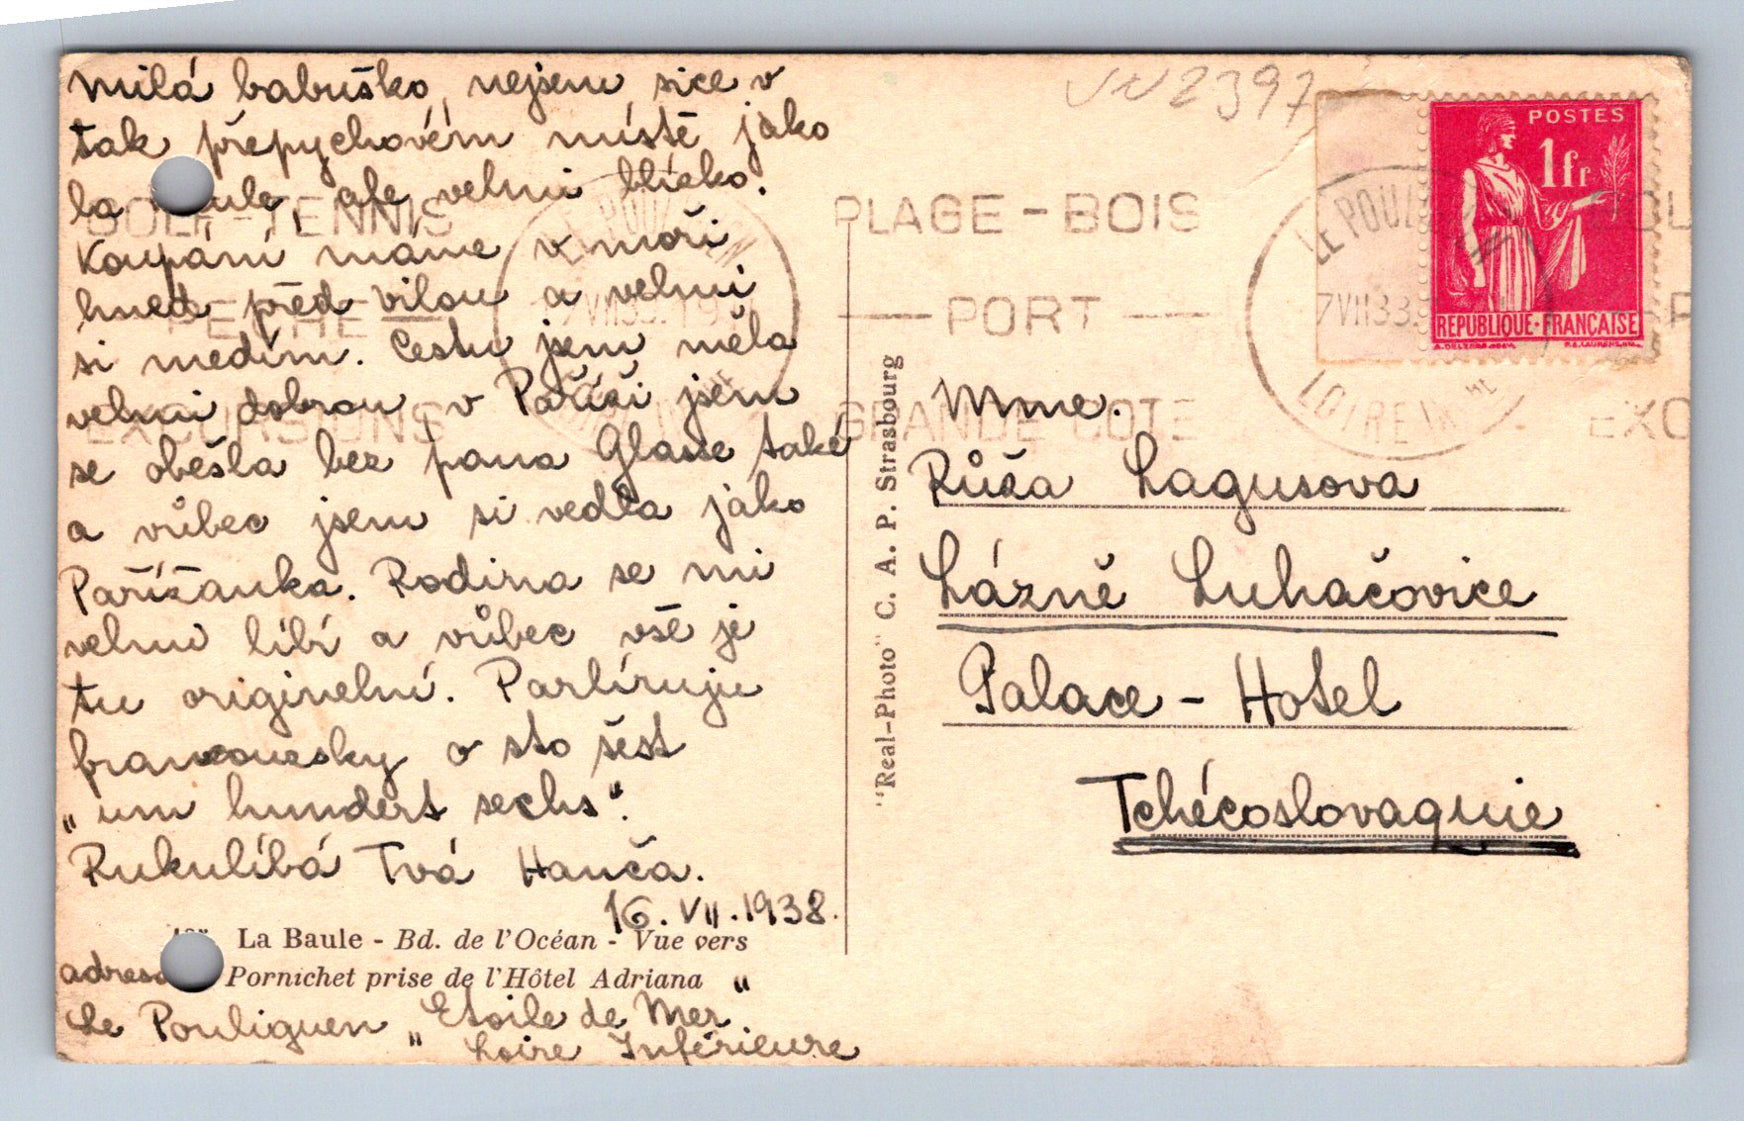 Milá babuško, nejsem sice v
tak přepychovém místě jako
la ule, ale velmi blízko.
Koupání máme v moři
hned před vilou a velmi
si medím. Cestu jsem měla
velmi dobrou, v Paříži jsem
se obešla bez pana Glasse také
a vůbec jsem si vedla jako
Pařížanka. Rodina se mi
velmi líbí a vůbec vše je
tu originelní. Parlíruju
francouzsky o sto šest
„um hundert sechs“.
Rukulíbá Tvá Hanča.
16. VII. 1938.
La Baule - Bd. de l'Océan - Vue vers
Pornichet prise de l'Hôtel Adriana
adresa "
Le Pouliguen „Etoile de Mer
Loire Inférieure
"Real-Photo" C. A. P. Strasbourg
2397
POSTES
1fr
REPUBLIQUE·FRANÇAISE
LE POULIGUEN
LOIRE INF
GOLF-TENNIS
PÊCHE
EXCURSIONS
PLAGE - BOIS
PORT
GRANDE CÔTE
EXC
Mme.
Růža Lagusova
Lázně Luhačovice
Palace - Hotel
Tchécoslovaquie